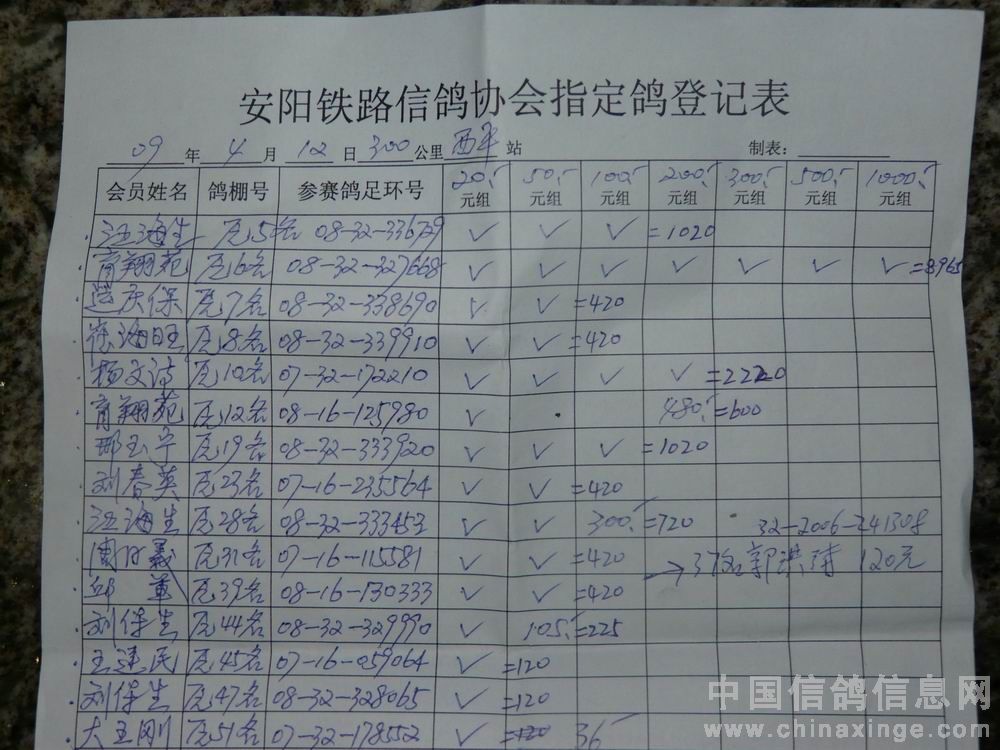 安阳铁路信鸽协会指定鸽登记表
09 年 4 月 12 日 300 公里 西平 站 制表:
会员姓名 鸽棚号 参赛鸽足环号 20.- 元组 50.- 元组 100.- 元组 200.- 元组 300.- 元组 500.- 元组 1000.- 元组
汪海生 瓦5名 08-32-33679 ✓ ✓ ✓ =1020
育翔苑 瓦6名 08-32-327668 ✓ ✓ ✓ ✓ ✓ ✓ ✓ =8965
庆保 瓦7名 08-32-338690 ✓ ✓ =420
海旺 瓦8名 08-32-339910 ✓ ✓ =420
杨文涛 瓦10名 07-32-172210 ✓ ✓ ✓ ✓ =2220
育翔苑 瓦12名 08-16-125980 ✓ 480.- =600
邢玉宇 瓦19名 08-32-333920 ✓ ✓ ✓ =1020
刘春英 瓦23名 07-16-235564 ✓ ✓ =420
汪海生 瓦28名 08-32-333453 ✓ ✓ 300.- =720 32-2006-241308
瓦31名 07-16-115581 ✓ ✓ =420 → 37名 郭洪涛 120元
邱 瓦39名 08-16-130333 ✓ ✓ =420
刘保生 瓦44名 08-32-329990 ✓ 105.- =225
王建民 瓦45名 07-16-059064 ✓ =120
刘保生 瓦47名 08-32-328065 ✓ =120
大王刚 瓦51名 07-32-178552 ✓ =120 36
中国信鸽信息网
www.chinaxinge.com